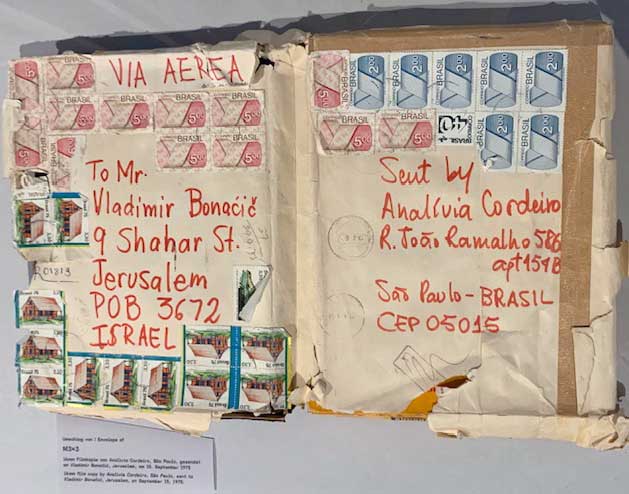 VIA AEREA
To Mr.
Vladimir Bonačić
9 Shahar St.
Jerusalem
POB 3672
ISRAEL
R01813
Sent by
Analívia Cordeiro
R. João Ramalho 586
apt 151B
São Paulo - BRASIL
CEP 05015
BRASIL 5,00
BRASIL 2,00
Brasil 76 3,30
Umschlag von | Envelope of
M3×3
16mm Filmkopie von Analivia Cordeiro, São Paulo, gesendet
an Vladimir Bonačić, Jerusalem, am 15. September 1975
16mm film copy by Analivia Cordeiro, São Paulo, sent to
Vladimir Bonačić, Jerusalem, on September 15, 1975